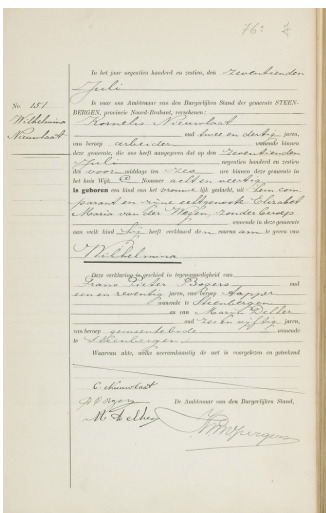 76
In het jaar negentien honderd en zestien, den zeventienden
Juli
No. 151
is voor ons Ambtenaar van den Burgerlijken Stand der gemeente STEEN-
Wilhelmina
BERGEN, provincie Noord-Brabant, verschenen:
Nieuwlaat
Kornelis Nieuwlaat
oud twee en dertig jaren,
van beroep arbeider wonende binnen
deze gemeente, die ons heeft aangegeven dat op den zeventienden
Juli negentien honderd en zestien
des voormiddags ten ure binnen deze gemeente in
het huis Wijk Nommer acht en veertig
is geboren een kind van het vrouwelijk geslacht, uit hem com
parant en zijne echtgenoote Elizabet
Maria van der zonder beroep
wonende in deze gemeente
aan welk kind hij heeft verklaard den naam te geven van
Wilhelmina
Deze verklaring is geschied in tegenwoordigheid van
Frans Pieter Bogers oud
een en zeventig jaren, van beroep
wonende te Steenbergen
en van Marijn
oud zeven en vijftig jaren,
van beroep gemeentebode wonende
te Steenbergen
Waarvan akte, welke overeenkomstig de wet is voorgelezen en geteekend
C Nieuwlaat
De Ambtenaar van den Burgerlijken Stand,